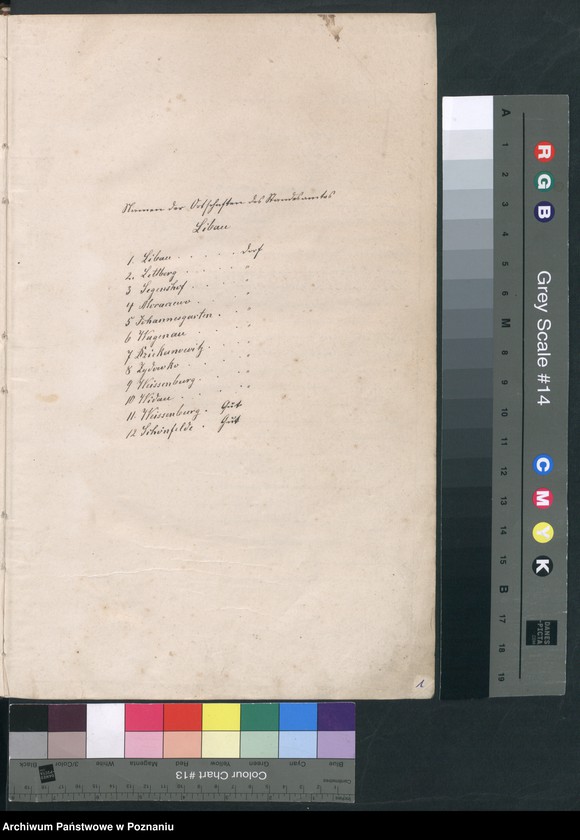 Namen der Ortschaften des Standesamtes
Libau
1. Libau . . . . . Dorf
2. Lettberg . . . . "
3 Segenshof . . . . "
4 . . . "
5 Johannesgarten . . . "
6 Wagenau . . . "
7 . . . "
8 Zydowko . . . "
9 Weissenburg . . . "
10 Widau . . . "
11. Weissenburg . Gut
12 Schönfelde . Gut
1
A 1 2 3 4 5 6 M 8 9 10 11 12 13 14 15 B 17 18 19
R G B
Grey Scale #14
C M Y K
DANES
PICTA
Blue Cyan Green Yellow Red Magenta White 3/Color Black
Colour Chart #13
Centimetres
Archiwum Państwowe w Poznaniu